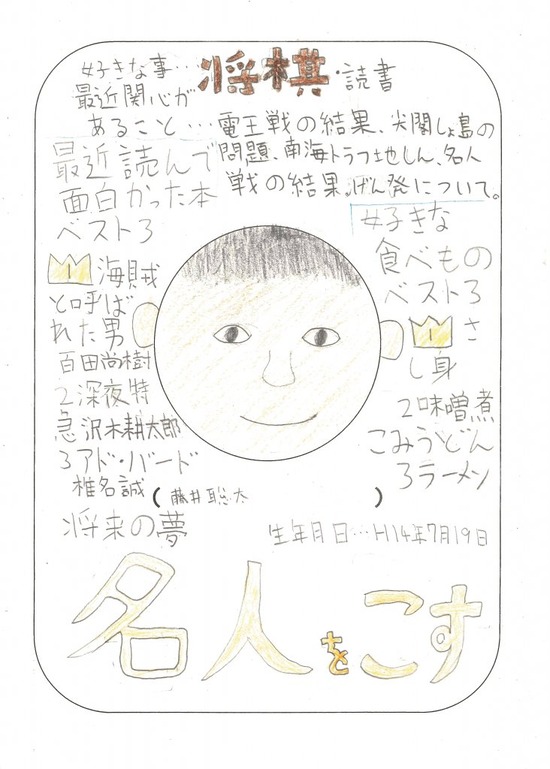 好きな事…将棋・読書
最近関心が
あること…電王戦の結果、尖閣しょ島の
問題、南海トラフ土地しん、名人
戦の結果、げん発について。
最近読んで
面白かった本
ベスト3
1 海賊
と呼ば
れた男
百田尚樹
2深夜特
急 沢木耕太郎
3アド・バード
椎名誠
好きな
食べもの
ベスト3
1 さ
し身
2味噌煮
こみうどん
3ラーメン
(藤井聡太)
生年月日…H14年7月19日
将来の夢
名人をこす